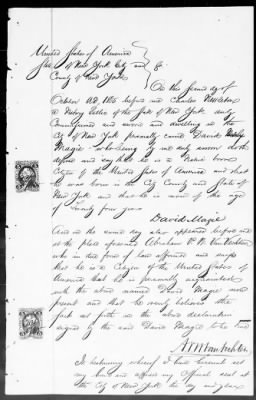 United States of America
State of New York City and
County of New York
On this second day of
October A.D. 1865 before me Charles Nettleton
a Notary Public of the State of New York duly
Commissioned and sworn and dwelling in the
City of New York personally came David
Magie who being by me duly sworn doth
depose and say that he is a Native born
Citizen of the United States of America and that
he was born in the City County and State of
New York and that he is now of the age
of Twenty four years
David Magie
And on the same day also appeared before me
at the place aforesaid Abraham Van Vechten
who in due form of law affirmed and says
that he is a Citizen of the United States of
America that he is personally acquainted
with the above named David Magie now
present and that he verily believes the
facts set forth in the above declaration
signed by the said David Magie to be true
Van Vechten
In testimony whereof I have hereunto set
my hand and affixed my Official seal at
the City of New York the day and year